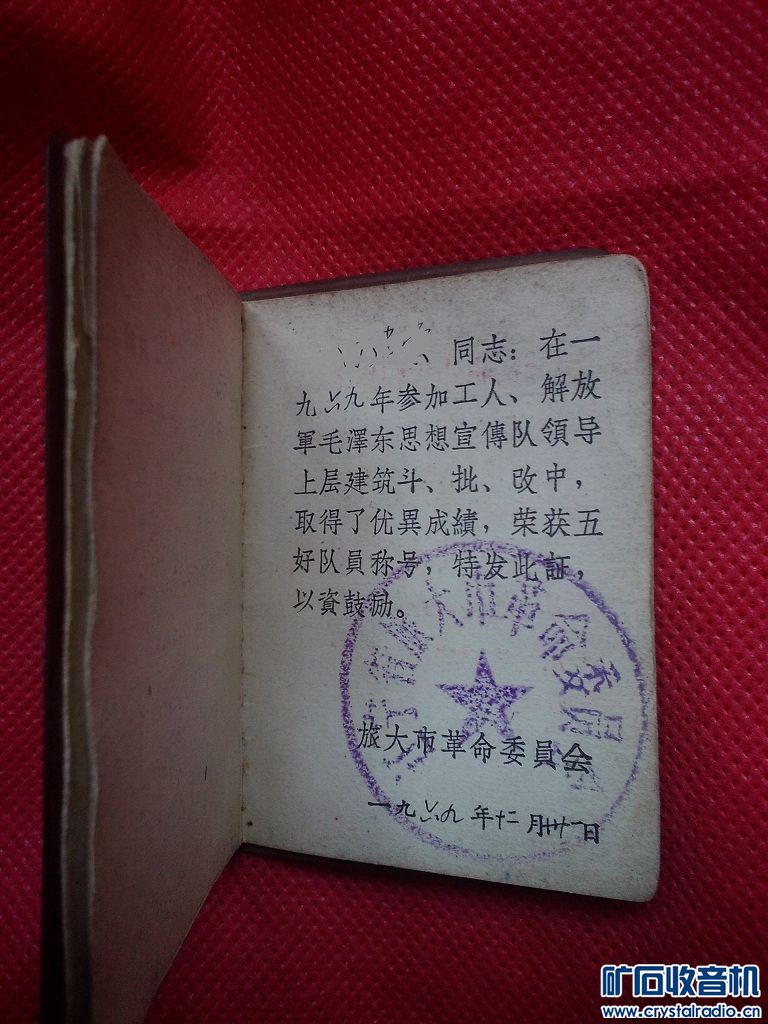 同志：在一
九六九年参加工人、解放
軍毛澤东思想宣傳队領导
上层建筑斗、批、改中，
取得了优異成績，荣获五
好队員称号，特发此証，
以資鼓励。
辽宁省旅大市革命委員会
旅大市革命委員会
一九六九年十二月卅一日
矿石收音机
www.crystalradio.cn